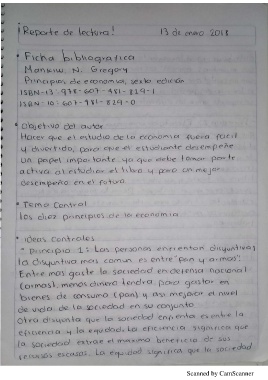 ¡Reporte de lectura! 13 de enero 2018
• Ficha bibliografica
Mankiw N. Gregory
Principios de economía, sexta edición
ISBN-13: 978-607-481-829-1
ISBN-10: 607-481-829-0
• Objetivo del autor
Hacer que el estudio de la economia fuera facil
y divertido, para que el estudiante desempeñe
un papel importante ya que debe tomar parte
activa al estudiar el libro y para un mejor
desempeño en el futuro.
• Tema Central
los diez principios de la economia
• Ideas Centrales
* Principio 1: Las personas enfrentan disyuntivas
la disyuntiva mas comun es entre "pan y armas"
Entre mas gaste la sociedad en defensa nacional
(armas), menos dinero tendra para gastar en
bienes de consumo (pan) y asi mejorar el nivel
de vida de la sociedad en su conjunto.
Otra disyuntiva que la sociedad enfrenta es entre la
eficiencia y la equidad. La eficiencia significa que
la sociedad extrae el maximo beneficio de sus
recursos escasos. La equidad significa que la sociedad
Scanned by CamScanner